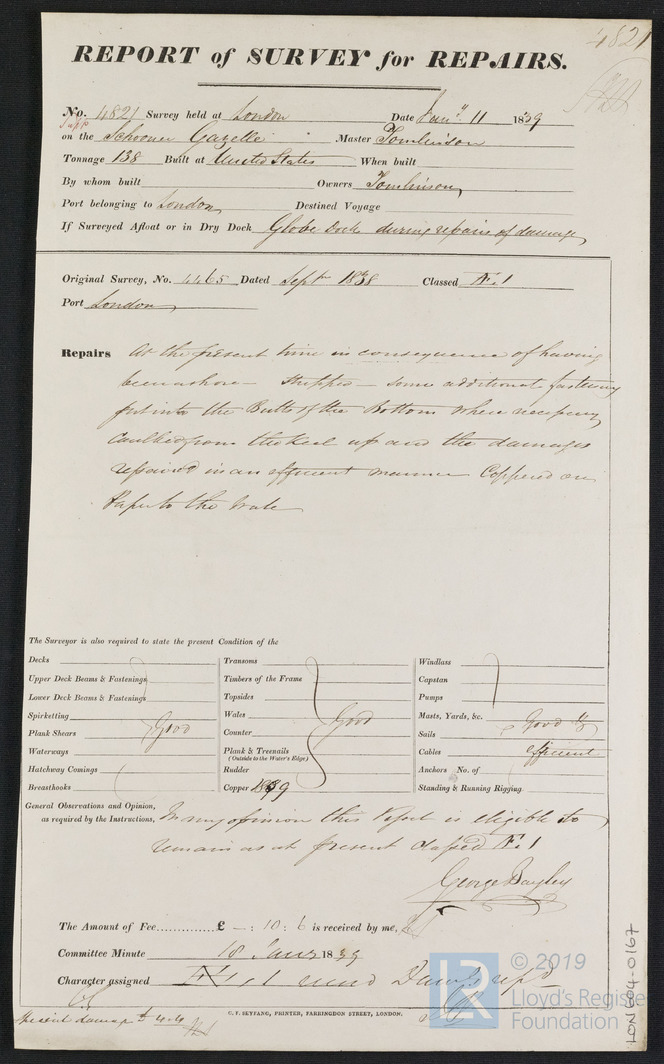 4821
REPORT of SURVEY for REPAIRS.
No. 4821 Survey held at London Date Jany 11 1839
on the Schooner Gazelle Master Tomlinson
Tonnage 138 Built at United States When built
By whom built Owners Tomlinson
Port belonging to London Destined Voyage
If Surveyed Afloat or in Dry Dock Globe Dock during repairs of damage
Original Survey, No. 4465 Dated Sept 1838 Classed Æ.1
Port London
Repairs At the present time in consequence of having
been ashore – stripped – some additional fastening
put into the Butts of the Bottom where necessary
Caulked from the keel up and the damages
repaired in an efficient manner Coppered on
Paper to the Wale
The Surveyor is also required to state the present Condition of the
Decks
Upper Deck Beams & Fastenings
Lower Deck Beams & Fastenings
Spirketting
Plank Shears Good
Waterways
Hatchway Comings
Breasthooks
Transoms
Timbers of the Frame
Topsides
Wales Good
Counter
Plank & Treenails
(Outside to the Water's Edge)
Rudder
Copper 1839
Windlass
Capstan
Pumps
Masts, Yards, &c. Good &
Sails
Cables efficient
Anchors No. of
Standing & Running Rigging
General Observations and Opinion, In my opinion this Vessel is eligible to
as required by the Instructions, remain as at present classed Æ.1
George Bayley
The Amount of Fee £ – : 10 : 6 is received by me,
Committee Minute 18 Jany 1839
Character assigned
C. F. SEYFANG, PRINTER, FARRINGDON STREET, LONDON.
LON 604-0167
© 2019
LR
Lloyd's Register
Foundation